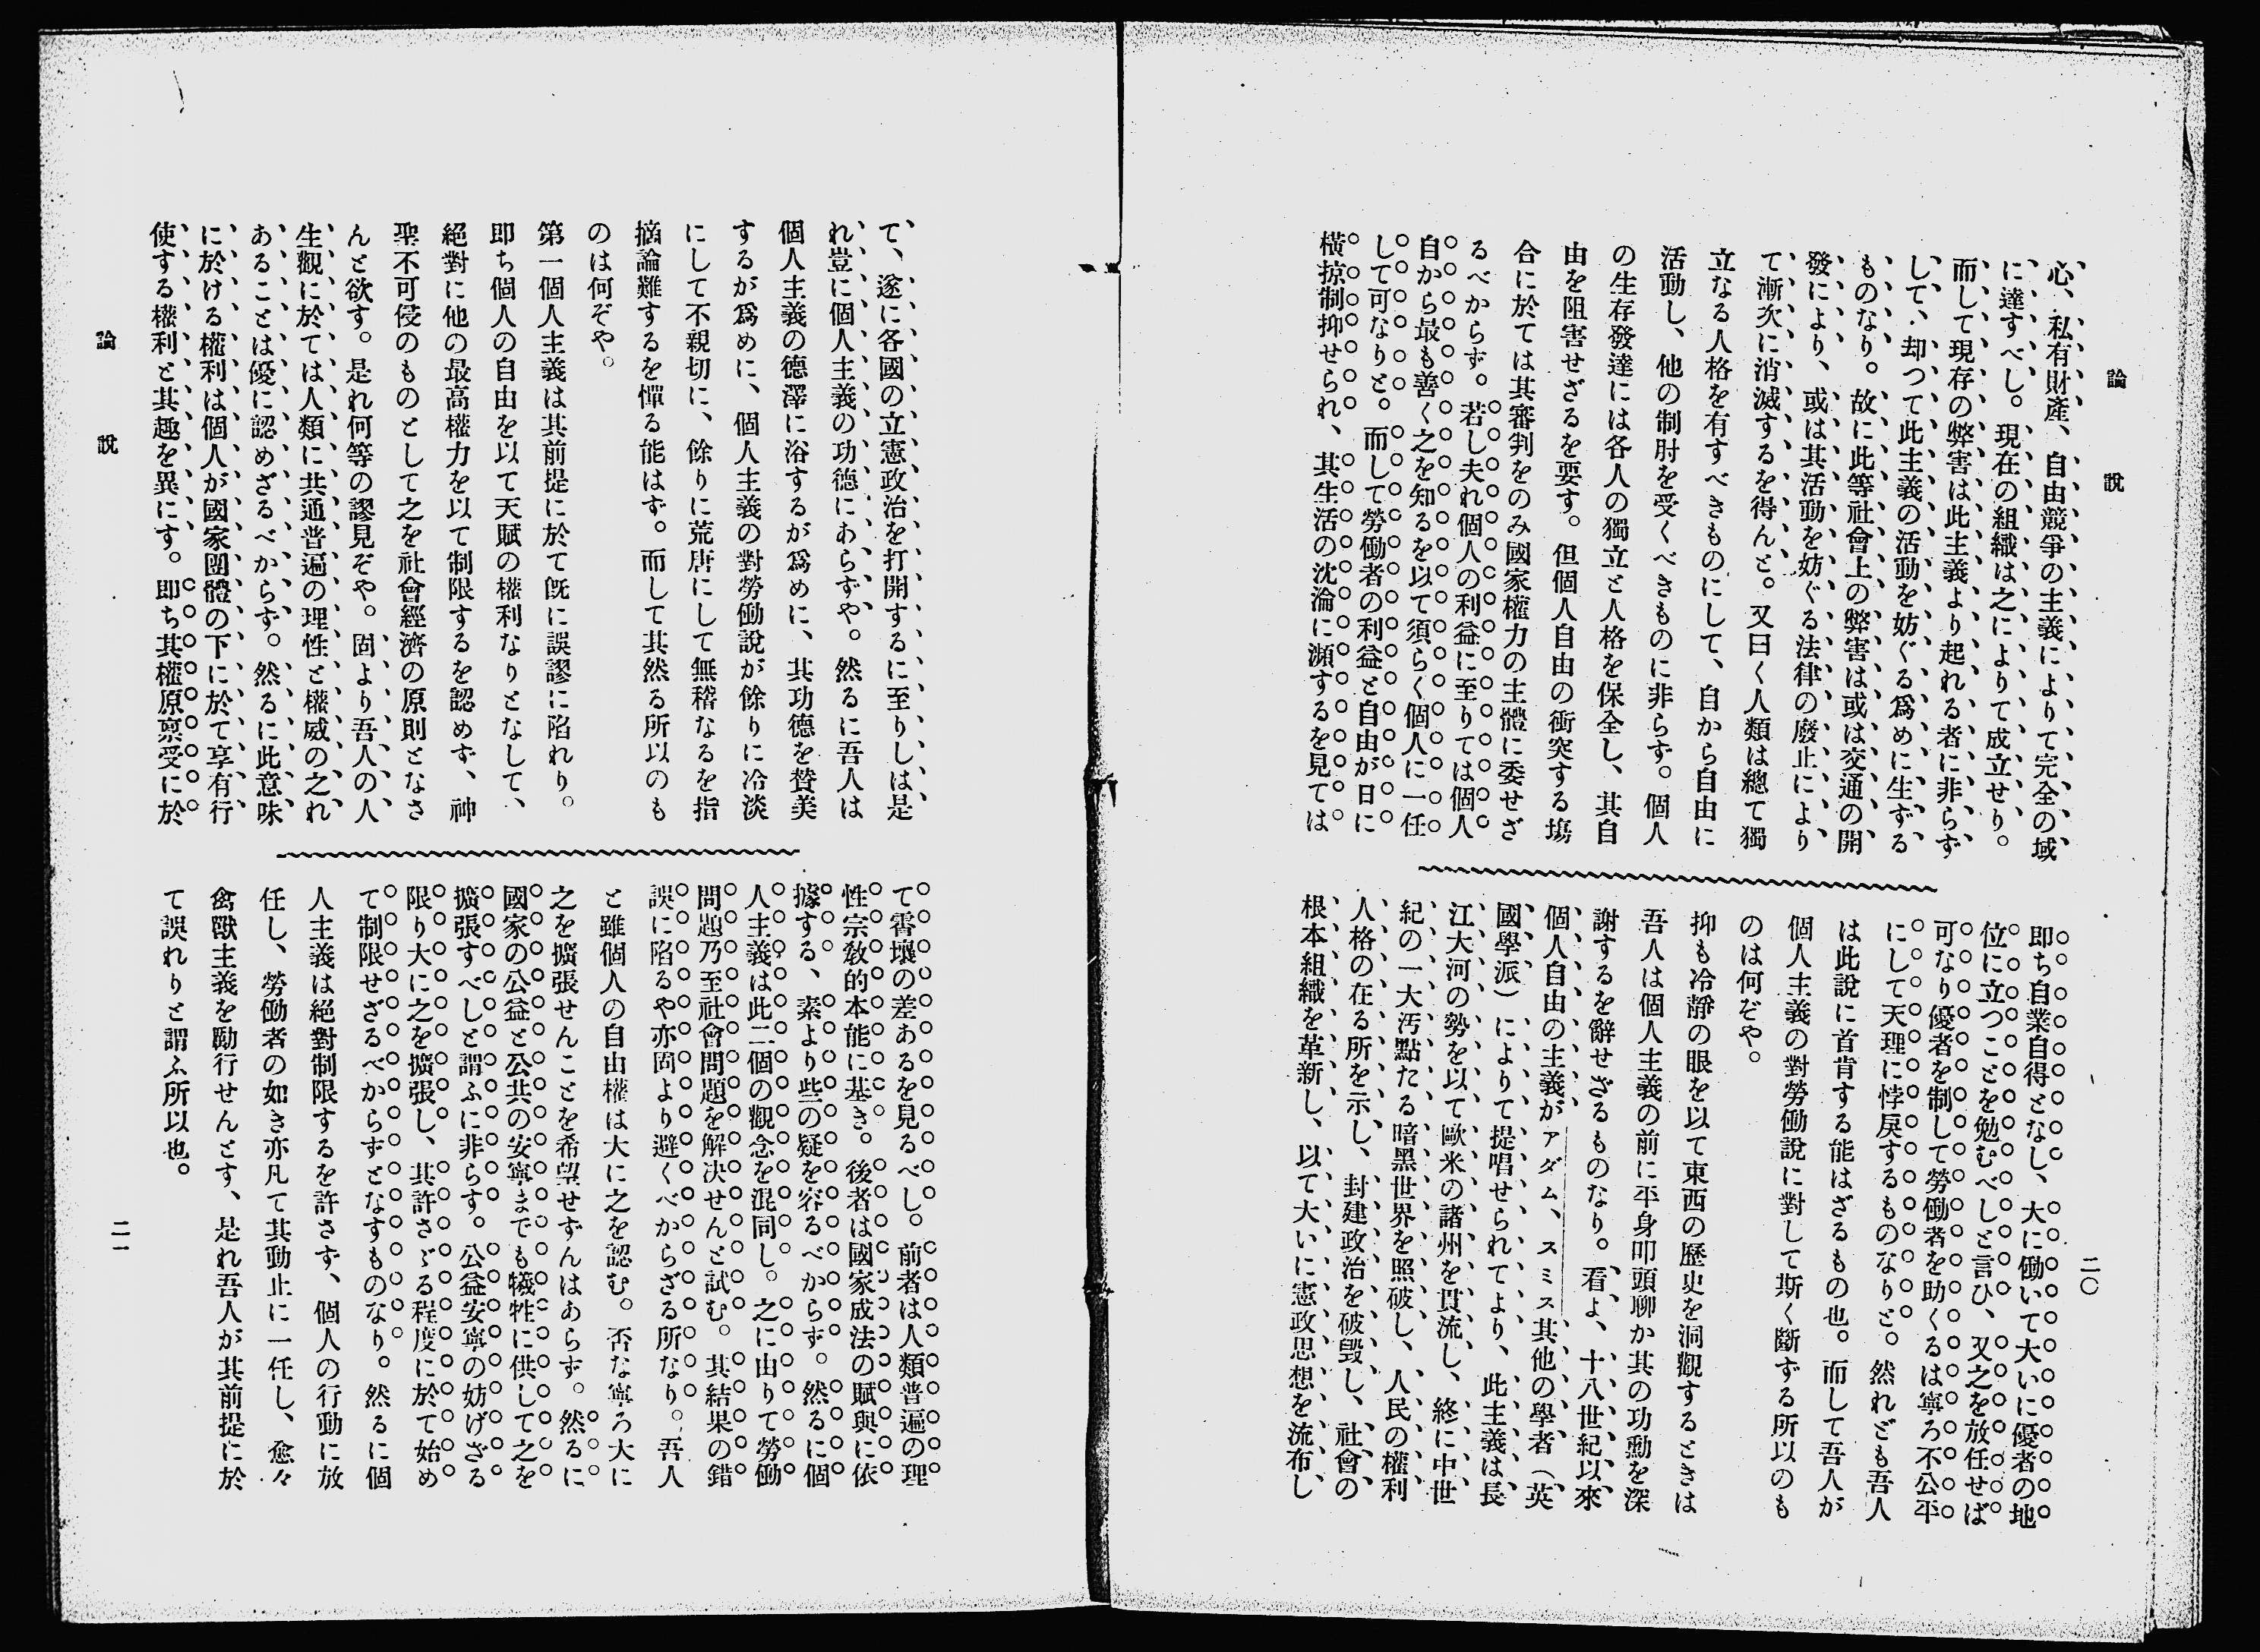 論說
心、私有財產、自由競爭の主義によりて完全の域
に達すべし。現在の組織は之によりて成立せり。
而して現存の弊害は此主義より起れる者に非らず
して、却つて此主義の活動を妨ぐる爲めに生ずる
ものなり。故に此等社會上の弊害は或は交通の開
發により、或は其活動を妨ぐる法律の廢止により
て漸次に消滅するを得んと。又曰く人類は總て獨
立なる人格を有すべきものにして、自から自由に
活動し、他の制肘を受くべきものに非らず。個人
の生存發達には各人の獨立と人格を保全し、其自
由を阻害せざるを要す。但個人自由の衝突する塲
合に於ては其審判をのみ國家權力の主體に委せざ
るべからず。若し夫れ個人の利益に至りては個人
自から最も善く之を知るを以て須らく個人に一任
して可なりと。而して勞働者の利益と自由が日に
橫掠制抑せられ、其生活の沈淪に瀕するを見ては
即ち自業自得となし、大に働いて大いに優者の地
位に立つことを勉むべしと言ひ、又之を放任せば
可なり優者を制して勞働者を助くるは寧ろ不公平
にして天理に悖戻するものなりと。然れども吾人
は此說に首肯する能はざるもの也。而して吾人が
個人主義の對勞働說に對して斯く斷ずる所以のも
のは何ぞや。
抑も冷靜の眼を以て東西の歷史を洞觀するときは
吾人は個人主義の前に平身叩頭聊か其の功勳を深
謝するを辭せざるものなり。看よ、十八世紀以來
個人自由の主義がアダム、スミス其他の學者（英
國學派）によりて提唱せられてより、此主義は長
江大河の勢を以て歐米の諸州を貫流し、終に中世
紀の一大汚點たる暗黑世界を照破し、人民の權利
人格の在る所を示し、封建政治を破毀し、社會の
根本組織を革新し、以て大いに憲政思想を流布し
二〇
論說
て、遂に各國の立憲政治を打開するに至りしは是
れ豈に個人主義の功德にあらずや。然るに吾人は
個人主義の德澤に浴するが爲めに、其功德を賛美
するが爲めに、個人主義の對勞働說が餘りに冷淡
にして不親切に、餘りに荒唐にして無稽なるを指
摘論難するを憚る能はず。而して其然る所以のも
のは何ぞや。
第一個人主義は其前提に於て旣に誤謬に陷れり。
即ち個人の自由を以て天賦の權利なりとなして、
絕對に他の最高權力を以て制限するを認めず、神
聖不可侵のものとして之を社會經濟の原則となさ
んと欲す。是れ何等の謬見ぞや。固より吾人の人
生觀に於ては人類に共通普遍の理性と權威の之れ
あることは優に認めざるべからず。然るに此意味
に於ける權利は個人が國家團體の下に於て享有行
使する權利と其趣を異にす。即ち其權原禀受に於
て霄壤の差あるを見るべし。前者は人類普遍の理
性宗敎的本能に基き。後者は國家成法の賦與に依
據する、素より些の疑を容るべからず。然るに個
人主義は此二個の觀念を混同し。之に由りて勞働
問題乃至社會問題を解决せんと試む。其結果の錯
誤に陷るや亦固より避くべからざる所なり。吾人
と雖個人の自由權は大に之を認む。否な寧ろ大に
之を擴張せんことを希望せずんはあらす。然るに
國家の公益と公共の安寧までも犧牲に供して之を
擴張すべしと謂ふに非らす。公益安寧の妨げざる
限り大に之を擴張し、其許さゞる程度に於て始め
て制限せざるべからずとなすものなり。然るに個
人主義は絕對制限するを許さず、個人の行動に放
任し、勞働者の如き亦凡て其動止に一任し、愈々
禽獸主義を勵行せんとす、是れ吾人が其前提に於
て誤れりと謂ふ所以也。
二一